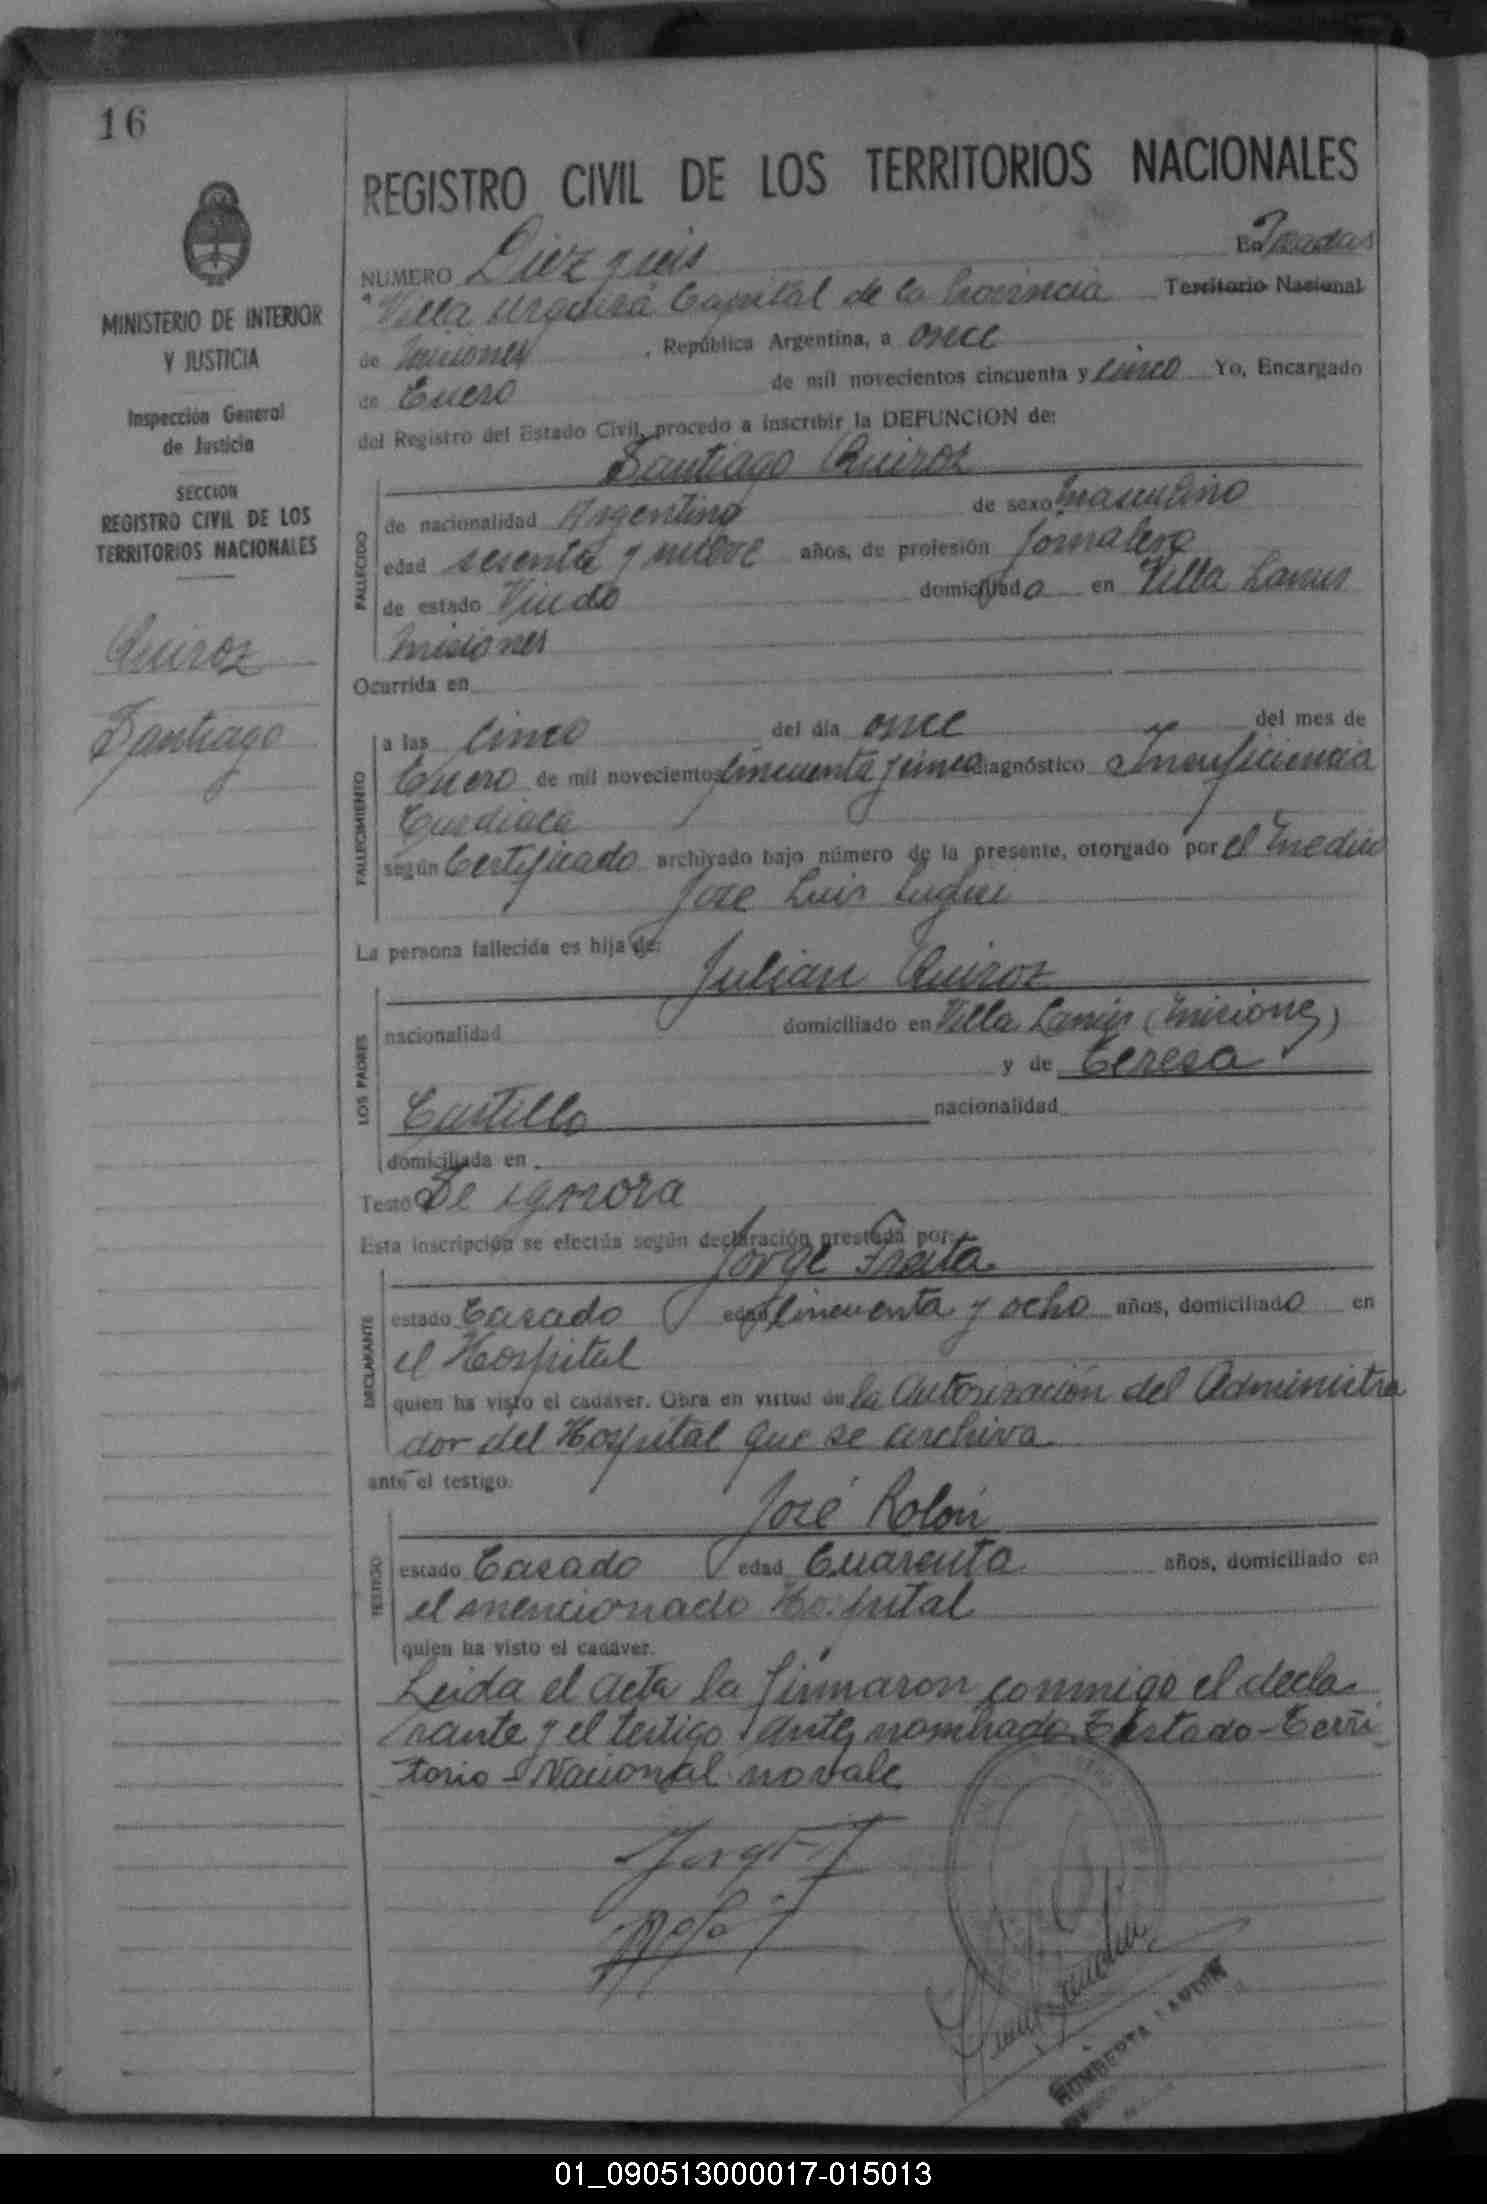 16
REGISTRO CIVIL DE LOS TERRITORIOS NACIONALES
MINISTERIO DE INTERIOR
Y JUSTICIA
Inspección General
de Justicia
SECCION
REGISTRO CIVIL DE LOS
TERRITORIOS NACIONALES
Quiroz
Santiago
NUMERO Diez y seis En Posadas
Villa Urquiza Capital de la Provincia Territorio Nacional
de Misiones, República Argentina, a once
de Enero de mil novecientos cincuenta y cinco Yo, Encargado
del Registro del Estado Civil, procedo a inscribir la DEFUNCION de:
Santiago Quiroz
FALLECIDO
de nacionalidad Argentino de sexo masculino
edad sesenta y nueve años, de profesión Jornalero
de estado Viudo domiciliado en Villa Lanus
Misiones
Ocurrida en
FALLECIMIENTO
a las cinco del día once del mes de
Enero de mil novecientos cincuenta y cinco diagnóstico Insuficiencia
Cardiaca
según Certificado archivado bajo número de la presente, otorgado por el medico
José Luis
La persona fallecida es hija de:
Julian Quiroz
LOS PADRES
nacionalidad domiciliado en Villa Lanus (Misiones)
y de Teresa
Castillo nacionalidad
domiciliada en
Testó Se ignora
Esta inscripción se efectúa según declaración prestada por:
Jorge
DECLARANTE
estado Casado edad cincuenta y ocho años, domiciliado en
el Hospital
quien ha visto el cadáver. Obra en virtud de la Autorización del Administra
dor del Hospital que se archiva
ante el testigo:
José Rolón
TESTIGO
estado Casado edad Cuarenta años, domiciliado en
el mencionado Hospital
quien ha visto el cadáver.
Leida el acta la firmaron conmigo el decla
rante y el testigo antes nombrado Testado-Terri
torio-Nacional no vale
HUMBERTA
01_090513000017-015013